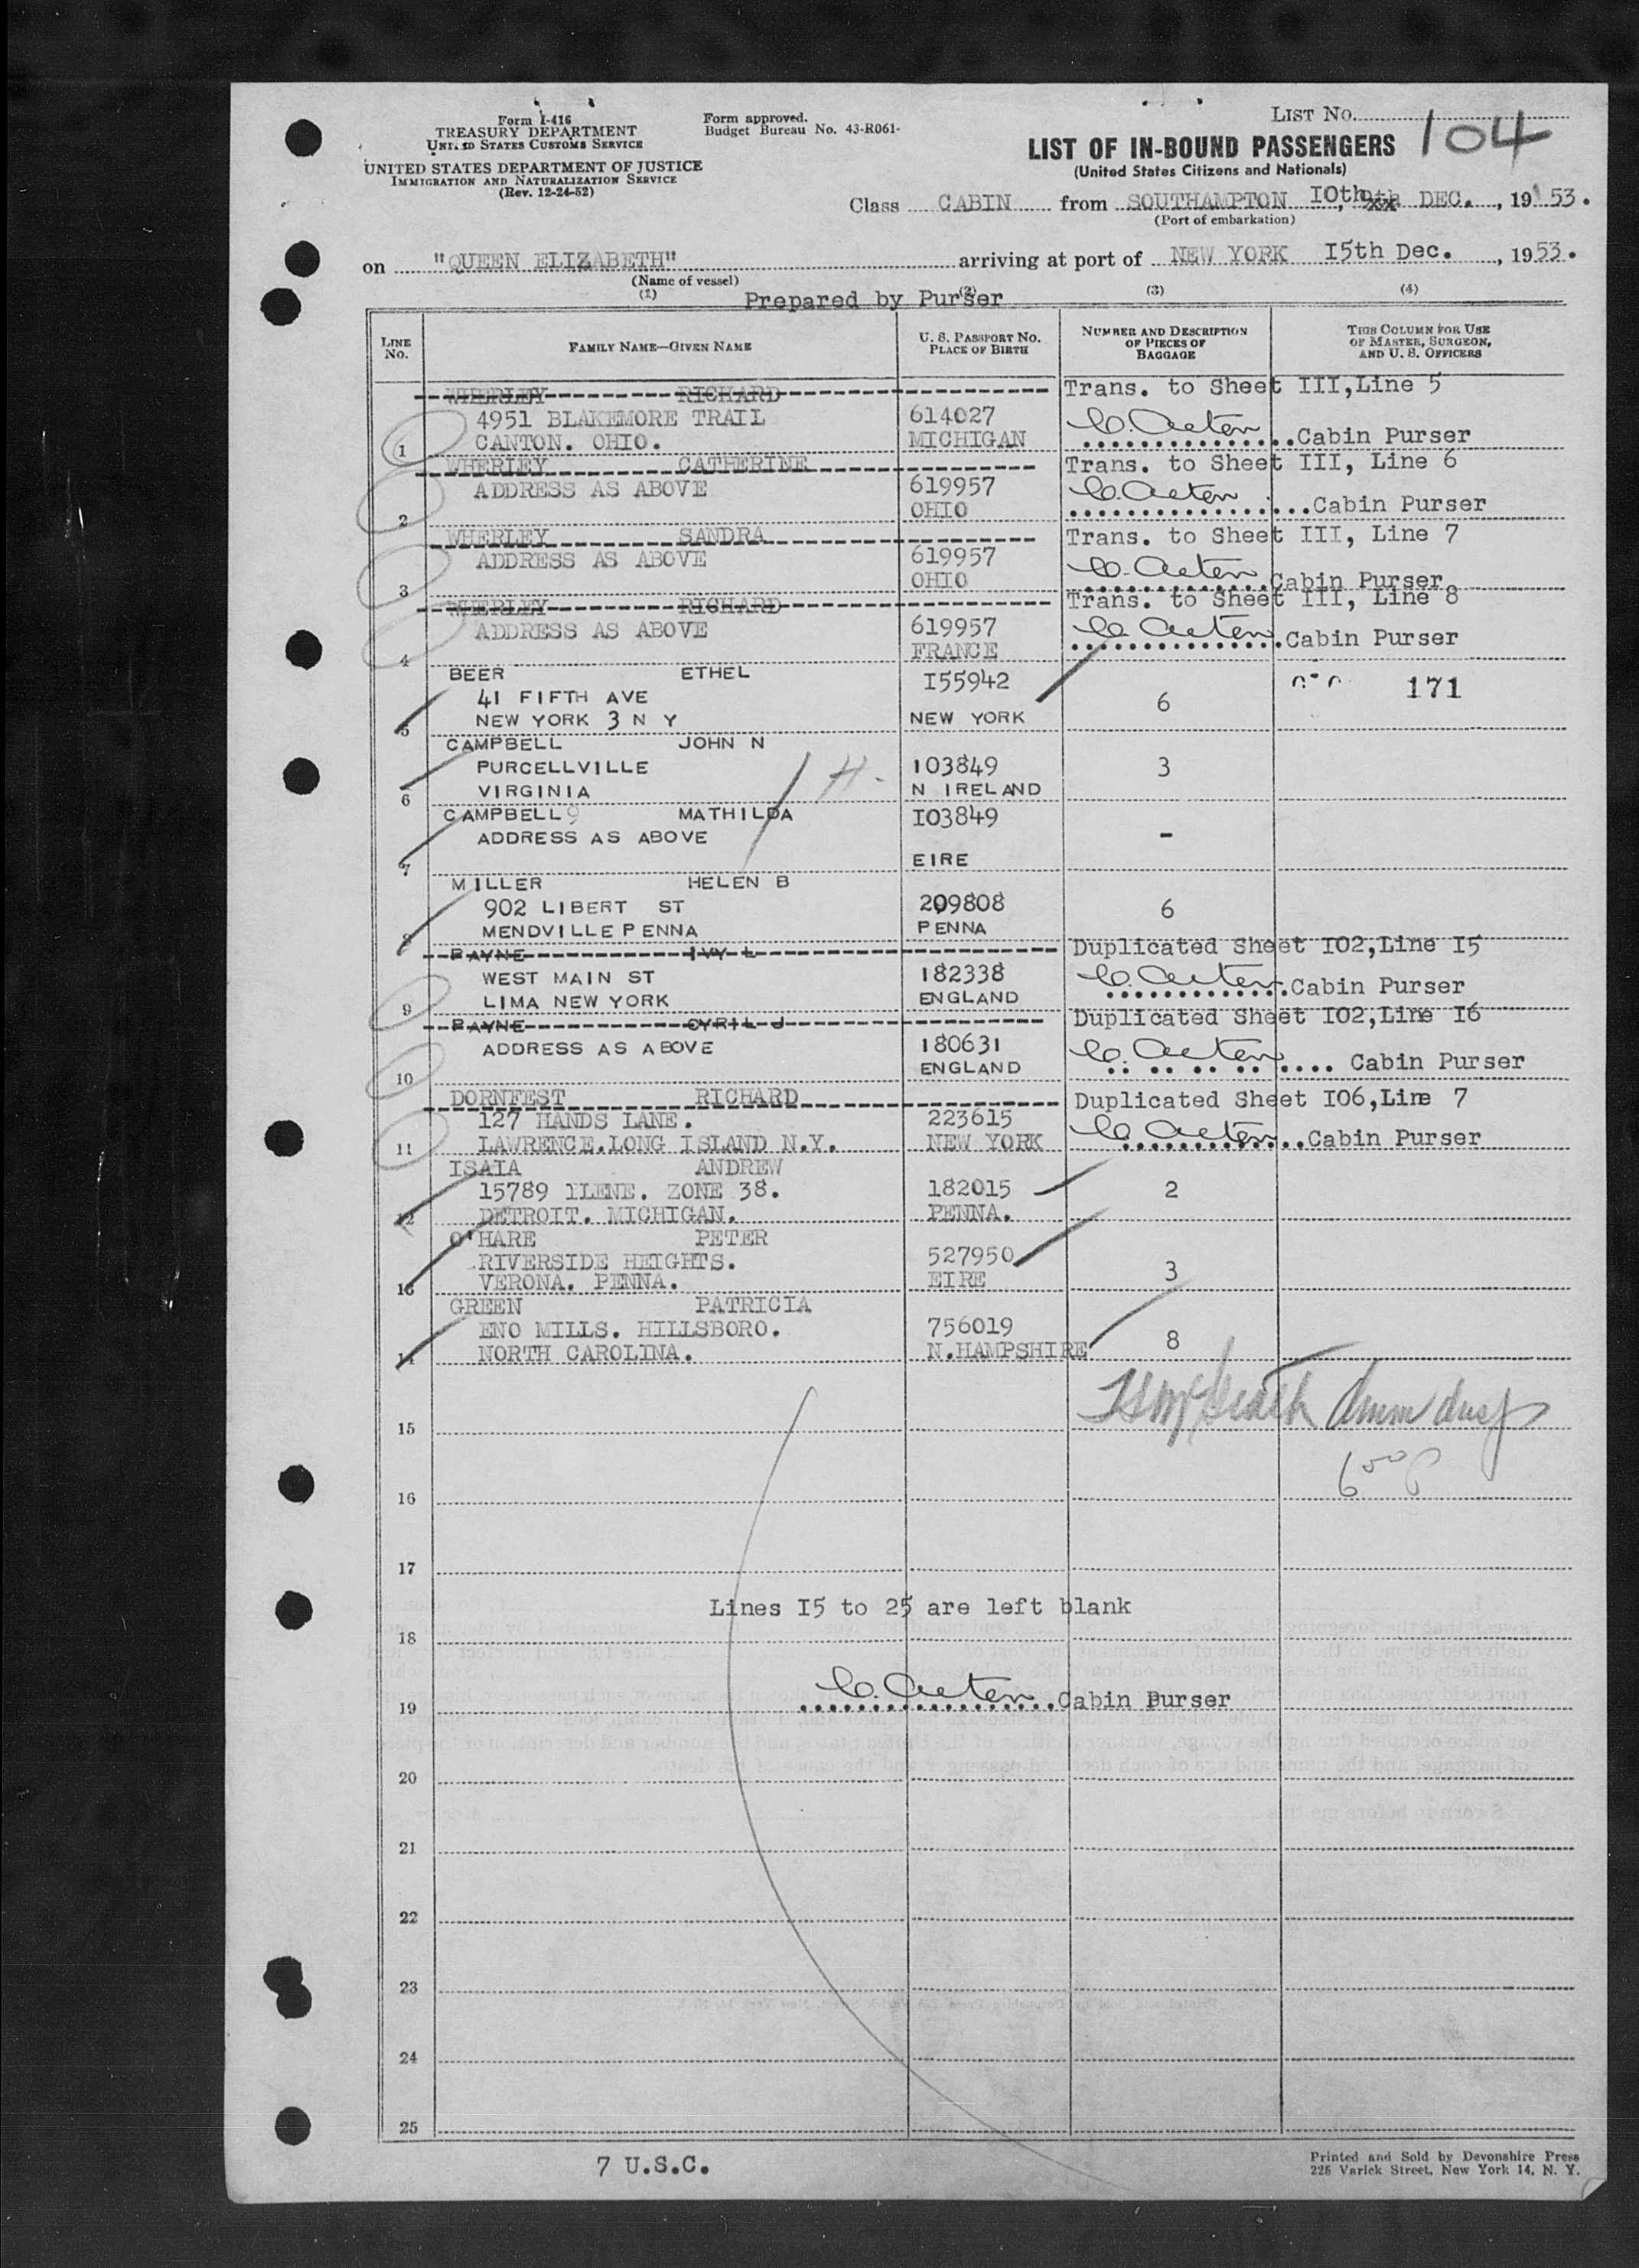 Form I-416
TREASURY DEPARTMENT
UNITED STATES CUSTOMS SERVICE
UNITED STATES DEPARTMENT OF JUSTICE
IMMIGRATION AND NATURALIZATION SERVICE
(Rev. 12-24-52)
Form approved.
Budget Bureau No. 43-R061-
LIST No. 104
LIST OF IN-BOUND PASSENGERS
(United States Citizens and Nationals)
Class CABIN from SOUTHAMPTON 10th, DEC., 1953.
(Port of embarkation)
on "QUEEN ELIZABETH" arriving at port of NEW YORK 15th Dec., 1953.
(Name of vessel)
(1) Prepared by Purser (2) (3) (4)
LINE No. FAMILY NAME—GIVEN NAME U. S. PASSPORT No. PLACE OF BIRTH NUMBER AND DESCRIPTION OF PIECES OF BAGGAGE THIS COLUMN FOR USE OF MASTER, SURGEON, AND U. S. OFFICERS
WHERLEY RICHARD Trans. to Sheet III, Line 5
4951 BLAKEMORE TRAIL 614027
1 CANTON. OHIO. MICHIGAN Cabin Purser
WHERLEY CATHERINE Trans. to Sheet III, Line 6
ADDRESS AS ABOVE 619957
2 OHIO Cabin Purser
WHERLEY SANDRA Trans. to Sheet III, Line 7
ADDRESS AS ABOVE 619957
3 OHIO Cabin Purser
WHERLEY RICHARD Trans. to Sheet III, Line 8
ADDRESS AS ABOVE 619957 Cabin Purser
4 FRANCE
BEER ETHEL I55942 171
41 FIFTH AVE 6
5 NEW YORK 3 N Y NEW YORK
CAMPBELL JOHN N
PURCELLVILLE 103849 3
6 VIRGINIA N IRELAND
CAMPBELL MATHILDA I03849
ADDRESS AS ABOVE -
7 EIRE
MILLER HELEN B
902 LIBERT ST 209808 6
8 MENDVILLE PENNA PENNA
PAYNE IVY L Duplicated Sheet I02, Line I5
WEST MAIN ST 182338
9 LIMA NEW YORK ENGLAND Cabin Purser
PAYNE CYRIL J Duplicated Sheet I02, Line I6
ADDRESS AS ABOVE 180631
10 ENGLAND Cabin Purser
DORNFEST RICHARD Duplicated Sheet I06, Line 7
127 HANDS LANE. 223615
11 LAWRENCE. LONG ISLAND N.Y. NEW YORK Cabin Purser
ISAIA ANDREW
15789 ILENE. ZONE 38. 182015 2
12 DETROIT. MICHIGAN. PENNA.
O'HARE PETER
RIVERSIDE HEIGHTS. 527950 3
13 VERONA. PENNA. EIRE
GREEN PATRICIA
ENO MILLS. HILLSBORO. 756019 8
14 NORTH CAROLINA. N.HAMPSHIRE
15
16
17
Lines I5 to 25 are left blank
18
19 Cabin Purser
20
21
22
23
24
25
7 U.S.C.
Printed and Sold by Devonshire Press
225 Varick Street, New York 14, N. Y.